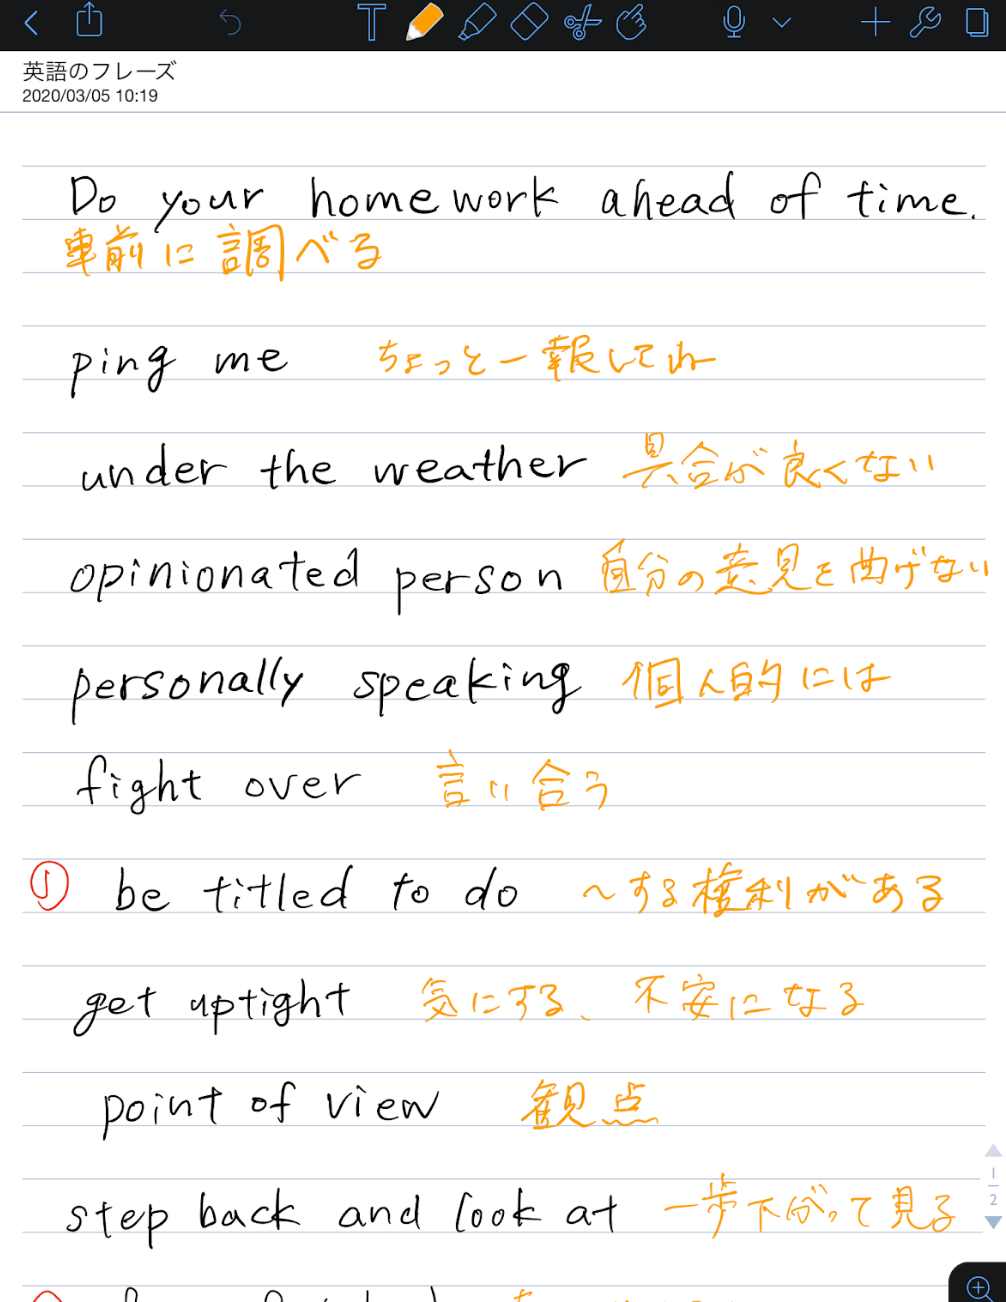 英語のフレーズ
2020/03/05 10:19
Do your homework ahead of time.
事前に調べる
ping me ちょっと一報してね
under the weather 具合が良くない
opinionated person 自分の意見を曲げない
personally speaking 個人的には
fight over 言い合う
① be titled to do ～する権利がある
get uptight 気にする、不安になる
point of view 観点
step back and look at 一歩下がって見る
1
2